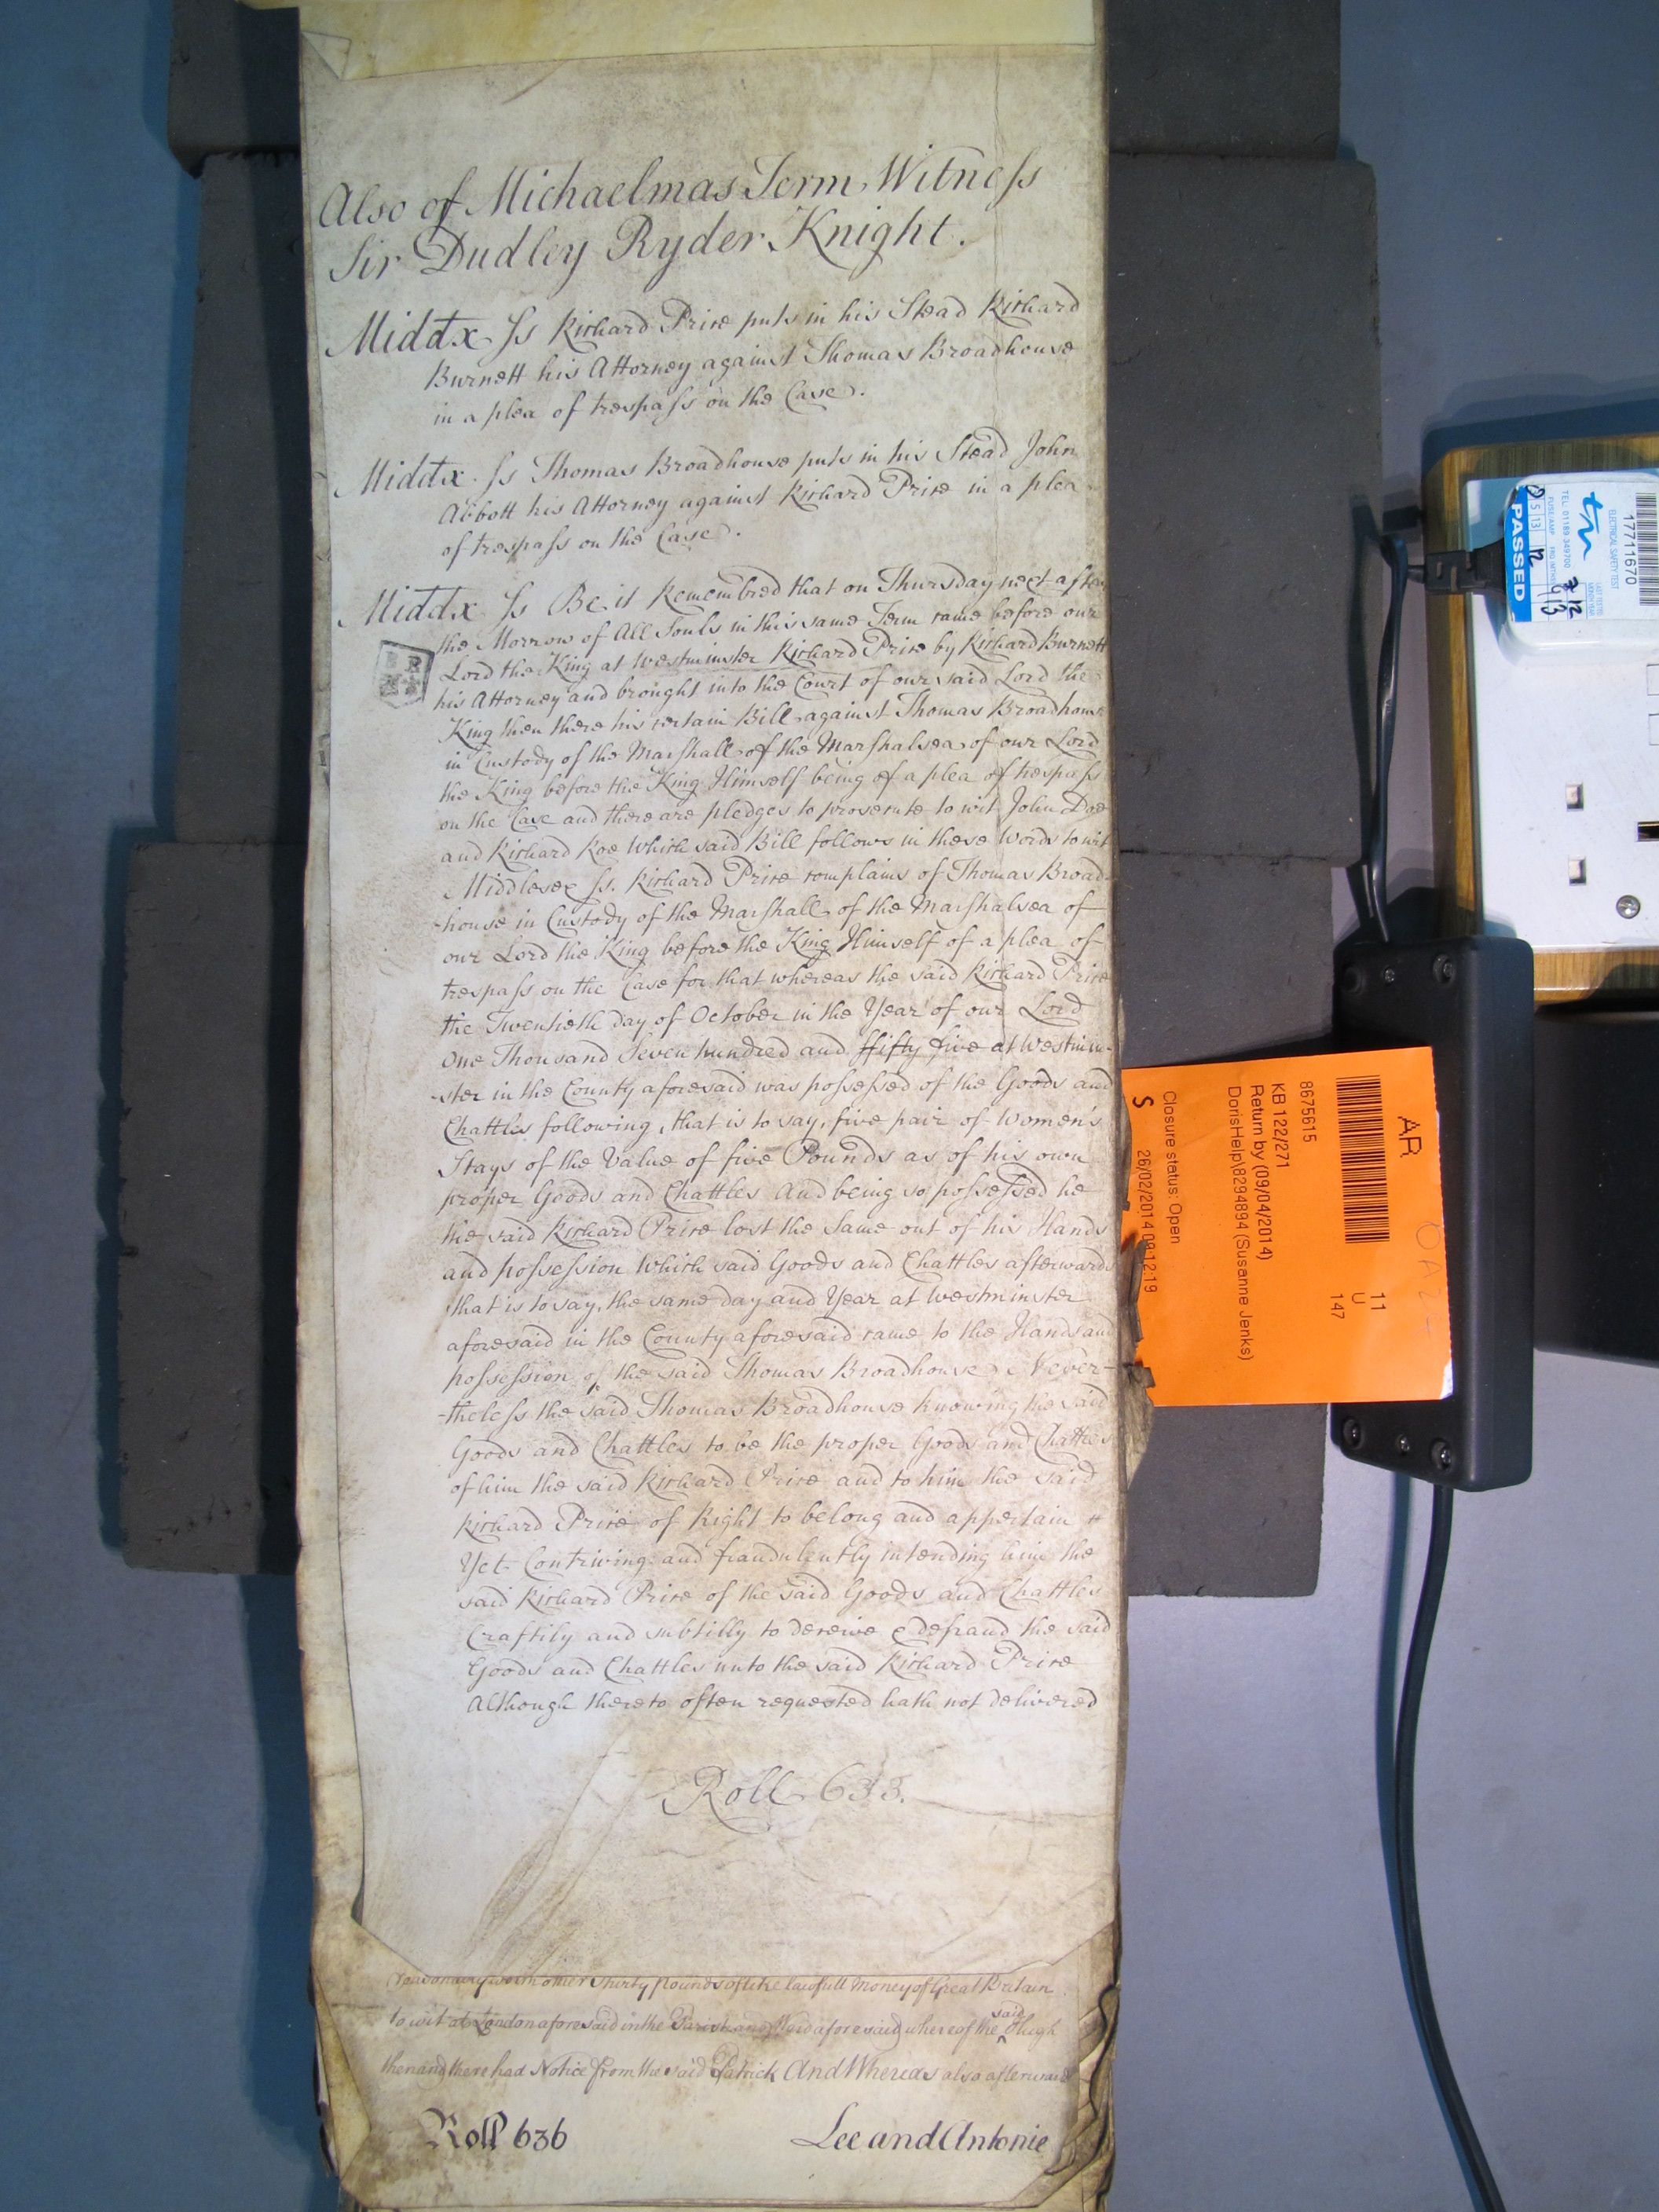 Also of Michaelmas Term Witness
Sir Dudley Ryder Knight.
Middx Ss Richard Price puts in his Stead Richard
Burnett his Attorney against Thomas Broadhouse
in a plea of trespass on the Case.
Middx Ss Thomas Broadhouse puts in his Stead John
Abbott his Attorney against Richard Price in a plea
of trespass on the Case.
Middx Ss Be it Remembred that on Thursday next after
the Morrow of All Souls in this same Term came before our
Lord the King at Westminster Richard Price by Richard Burnett
his Attorney and brought into the Court of our said Lord the
King then there his certain Bill against Thomas Broadhouse
in Custody of the Marshall of the Marshalsea of our Lord
the King before the King Himself being of a plea of trespass
on the Case and there are pledges to prosecute to wit John Doe
and Richard Roe Which said Bill follows in these Words to wit
Middlesex Ss. Richard Price complains of Thomas Broad-
-house in Custody of the Marshall of the Marshalsea of
our Lord the King before the King Himself of a plea of
trespass on the Case for that whereas the said Richard Price
the Twentieth day of October in the Year of our Lord
One Thousand Seven hundred and ffifty five at Westmin-
-ster in the County aforesaid was possessed of the Goods and
Chattles following, that is to say, five pair of Women's
Stays of the Value of five Pounds as of his own
proper Goods and Chattles And being so possessed he
the said Richard Price lost the Same out of his Hands
and possession Which said Goods and Chattles afterwards
that is to say, the same day and Year at Westminster
aforesaid in the County aforesaid came to the Hands and
possession of the said Thomas Broadhouse Never-
-theless the said Thomas Broadhouse knowing the said
Goods and Chattles to be the proper Goods and Chattles
of him the said Richard Price and to him the said
Richard Price of Right to belong and appertain
Yet Contriving and fraudulently intending him the
said Richard Price of the said Goods and Chattles
Craftily and subtilly to deceive & defraud the said
Goods and Chattles unto the said Richard Price
Although thereto often requested hath not delivered
Roll 633.
reasonably worth other thirty pounds of like lawfull money of Great Britain
to wit at London aforesaid in the Parish and Ward aforesaid whereof the said Hugh
then and there had Notice from the said Patrick And Whereas also afterwards
Roll 636 Lee and Antonie
AR
8675615
KB 122/271
Return by (09/04/2014)
DorisHelp\8294894 (Susanne Jenks)
11
U
147
Closure status: Open
S 26/02/2014 09:12:19
17711670
ELECTRICAL SAFETY TEST
TEL: 01189 349700
PASSED